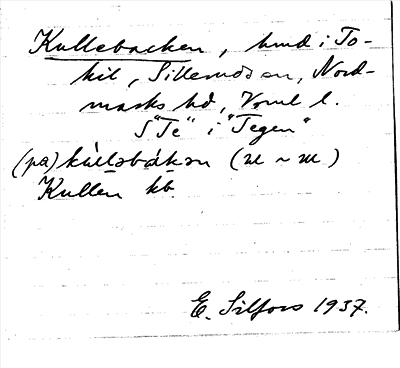 Kullebacken, hmd i To-
kil, Sillerudsn, Nord-
marks hd, Vrml l.
S "Te" i "Tegen"
(på) kùlləbákən
Kullen kb.
E. Silfors 1937.